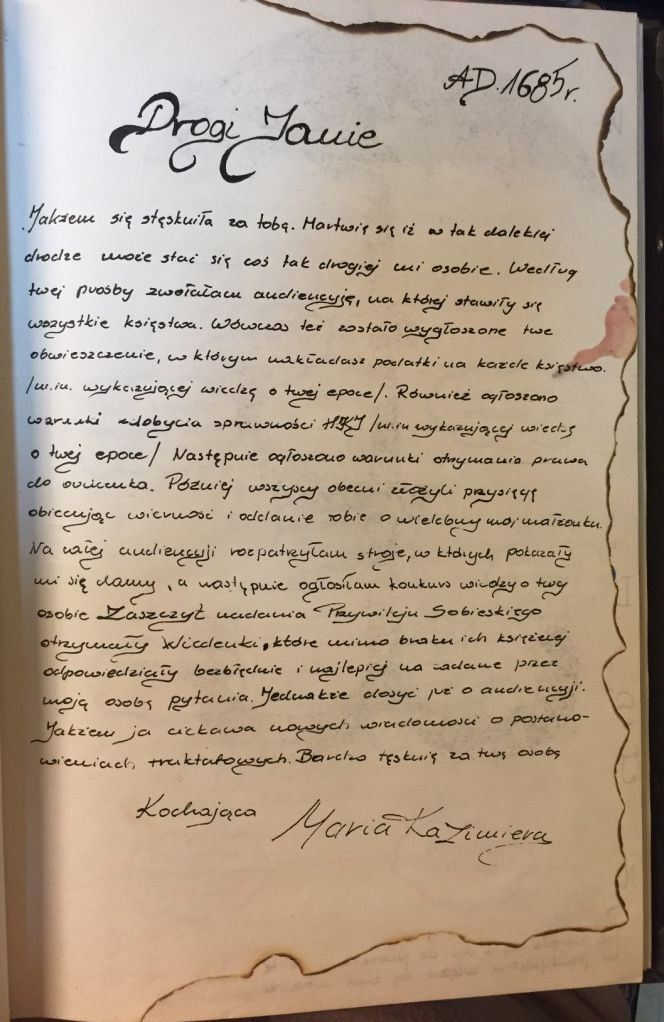 AD. 1685r.
Drogi Janie
Jakżem się stęskniła za tobą. Martwię się iż w tak dalekiej
drodze może stać się coś tak drogiej mi osobie. Według
twej prośby zwołałam audiencyję, na której stawiły się
wszystkie księstwa. Wówczas też zostało wygłoszone twe
obwieszczenie, w którym nakładasz podatki na każde księstwo.
/m.in. wykazującej wiedzę o twej epoce/. Również ogłoszono
warunki zdobycia sprawności /m.in wykazującej wiedzę
o twej epoce/ Następnie ogłoszono warunki otrzymania prawa
do Później wszyscy obecni złożyli przysięgę
obiecując wierność i oddanie tobie o wielebny mój małżonku.
Na całej audiencyji rozpatrzyłam stroje, w których pokazały
mi się damy, a następnie ogłosiłam konkurs wiedzy o twej
osobie Zaszczyt nadania Przywileju Sobieskiego
otrzymały Wiedenki, które mimo braku ich księżnej
odpowiedziały bezbłędnie i najlepiej na zadane przez
moją osobę pytania. Jednakże dosyć już o audiencyji.
Jakżem ja ciekawa nowych wiadomości o postano-
wieniach traktatowych. Bardzo tęsknię za twą osobą
Kochająca Maria Kazimiera